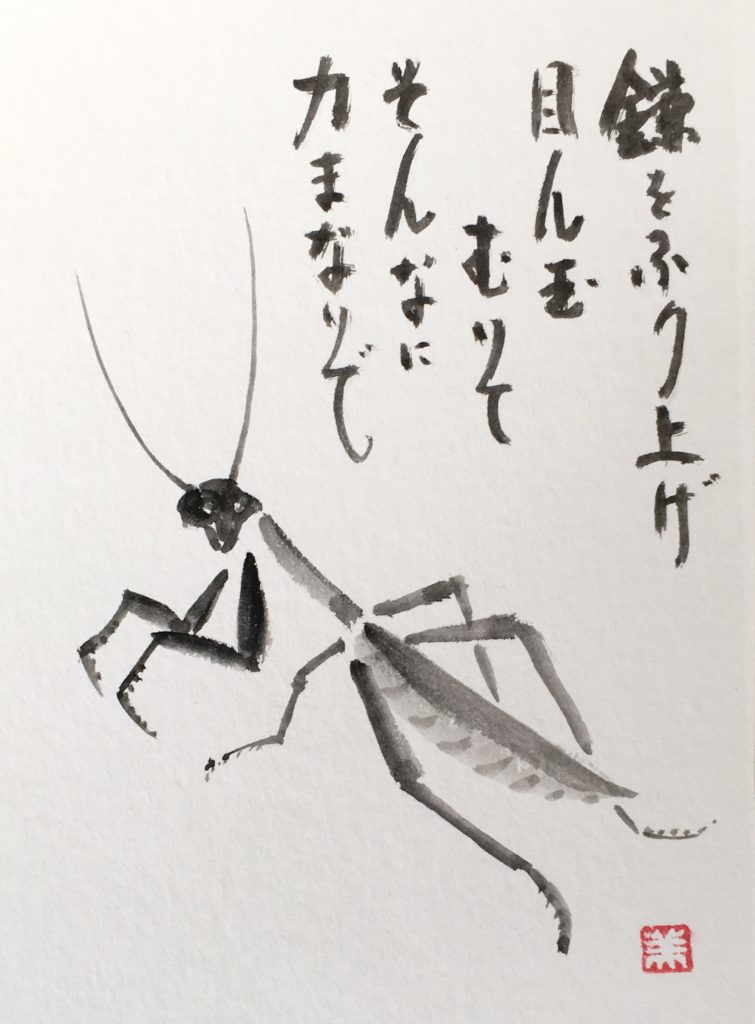 鎌をふり上げ
目ん玉
むいて
そんなに
力まないで